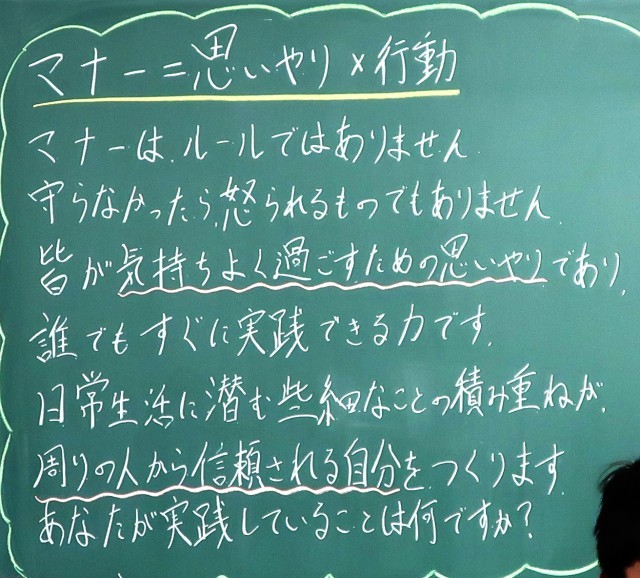 マナー＝思いやり×行動
マナーは、ルールではありません。
守らなかったら、怒られるものでもありません。
皆が気持ちよく過ごすための思いやりであり、
誰でもすぐに実践できる力です。
日常生活に潜む些細なことの積み重ねが、
周りの人から信頼される自分をつくります。
あなたが実践していることは何ですか？